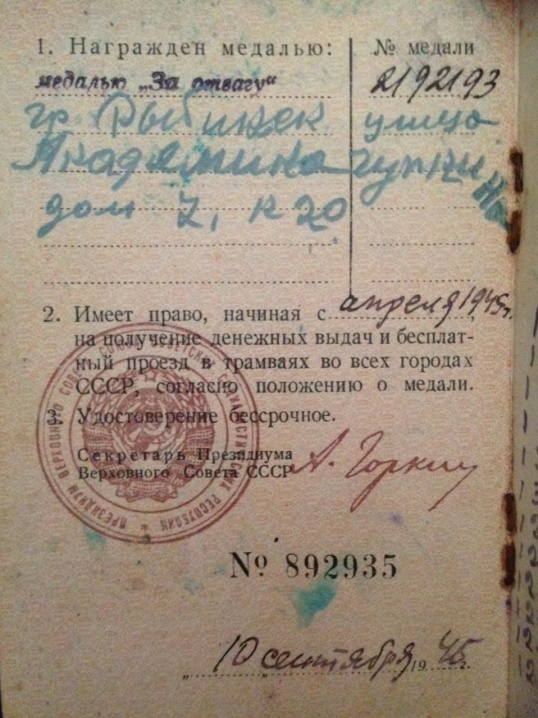 1. Награжден медалью: № медали
медалью „За отвагу“ 2192193
гр Рыбинск улица
Академика Гупкин
дом 7, к 20
2. Имеет право, начиная с апреля 1945г.,
на получение денежных выдач и бесплат-
ный проезд в трамваях во всех городах
СССР, согласно положению о медали.
3. Удостоверение бессрочное.
Секретарь Президиума
Верховного Совета СССР А. Горкин
ПРЕЗИДИУМ ВЕРХОВНОГО СОВЕТА СОЮЗА СОВЕТСКИХ СОЦИАЛИСТИЧЕСКИХ РЕСПУБЛИК
№ 892935
„10 сентября 1945г.